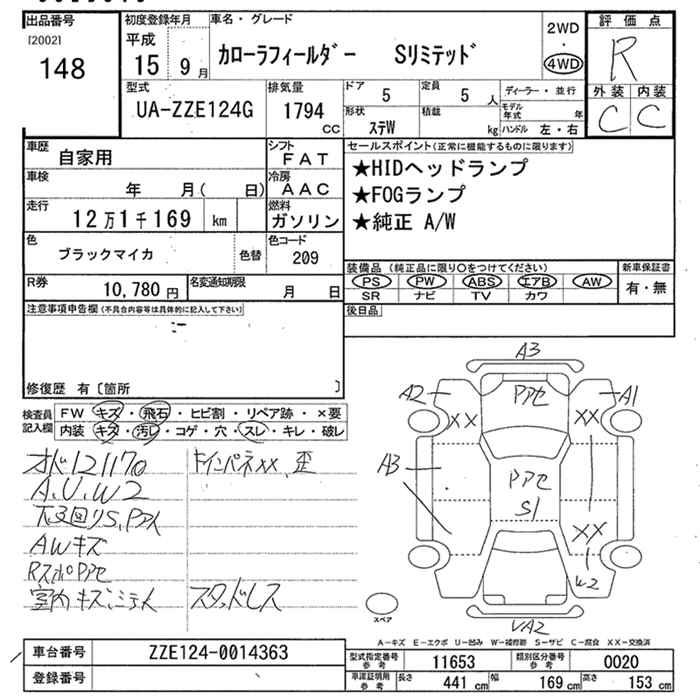 出品番号
[2002]
148
初度登録年月
平成
15 9月
車名・グレード
カローラフィールダー Sリミテッド
2WD
・
4WD
評価点
R
外装 内装
C C
型式
UA-ZZE124G
排気量
1794
CC
ドア 5
定員 5 人
ディーラー・並行
形状 ステW
積載 kg
モデル年式 年
ハンドル 左・右
車歴 自家用
シフト FAT
車検 年 月( 日)
冷房 AAC
走行 12万1千169 km
燃料 ガソリン
色 ブラックマイカ 色替
色コード 209
R券 10,780円
名変通知期限 月 日
セールスポイント(正常に機能するものに限ります)
★HIDヘッドランプ
★FOGランプ
★純正 A/W
装備品 (純正品に限り○をつけてください)
新車保証書
PS PW ABS エアB AW
有・無
SR ナビ TV カワ
後日品
注意事項申告欄(不具合内容等は具体的に記入して下さい)
修復歴 有〔箇所 〕
検査員記入欄
FW キズ・飛石・ヒビ割・リペア跡・×要
内装 キズ・汚レ・コゲ・穴・スレ・キレ・破レ
オド121170
A.U.W2
AWキズ
室内キズ、シミ大
スタッドレス
A3
A2
A1
Pアセ
XX
XX
A3
Pアセ
S1
XX
W2
VA2
スペア
A-キズ E-エクボ U-凹み W-補修跡 S-サビ C-腐食 XX-交換済
車台番号 ZZE124-0014363
登録番号
型式指定番号 参考 11653
類別区分番号 参考 0020
車庫証明用 参考 長さ 441 cm 幅 169 cm 高さ 153 cm